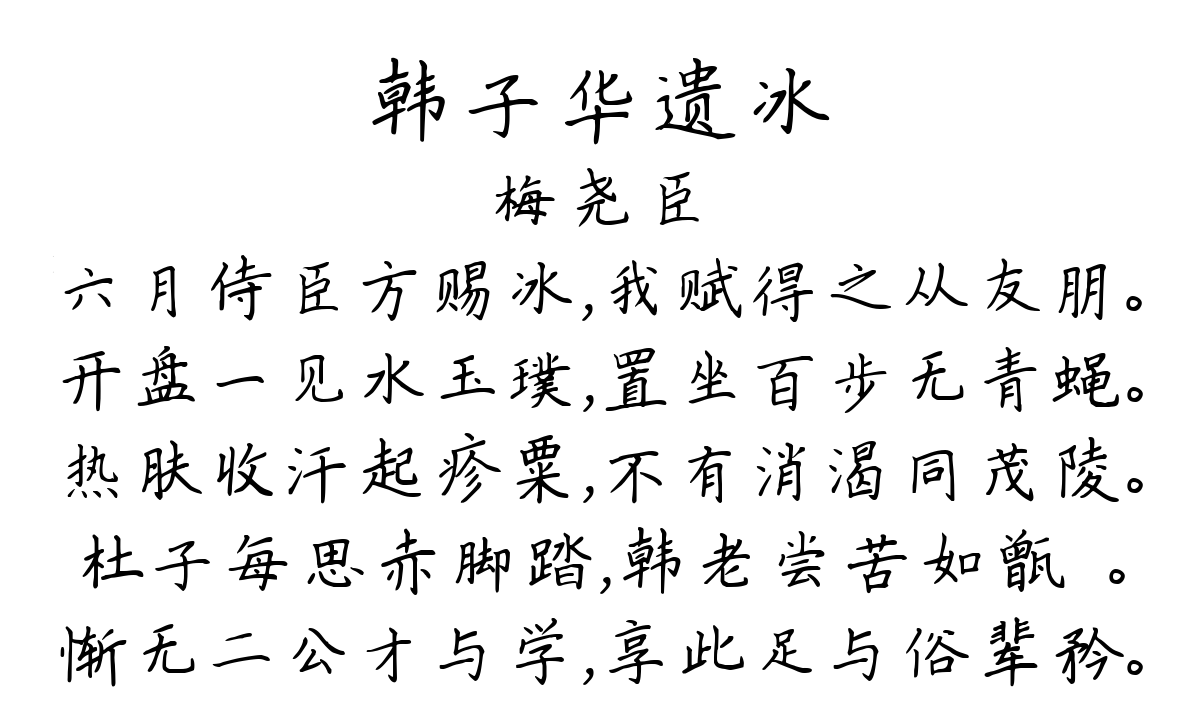 韩子华遗冰
梅尧臣
六月侍臣方赐冰,我赋得之从友朋。
开盘一见水玉璞,置坐百步无青蝇。
热肤收汗起疹粟,不有消渴同茂陵。
杜子每思赤脚踏,韩老尝苦如甑。
惭无二公才与学,享此足与俗辈矜。